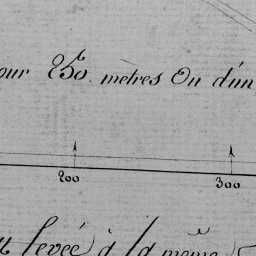 our 250 mètres Ou d'un
200 300
levée à la même